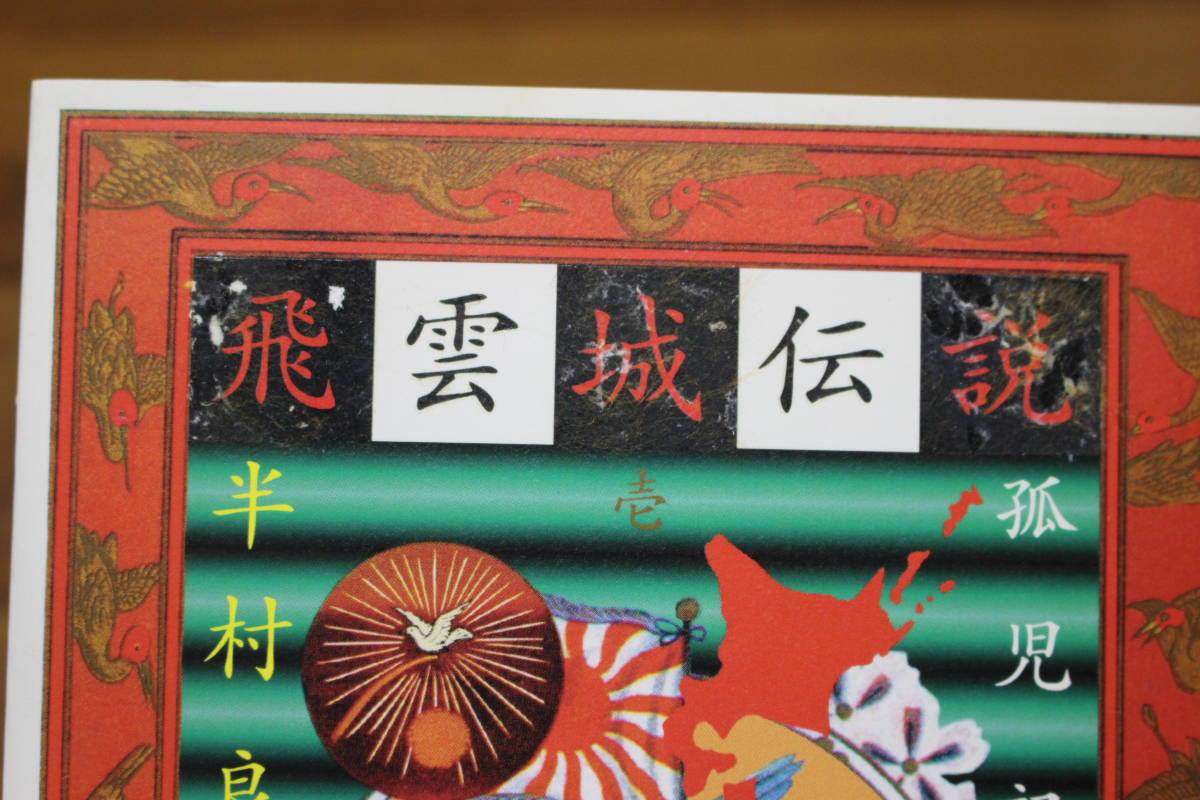 飛雲城伝説
壱
半村良
孤児